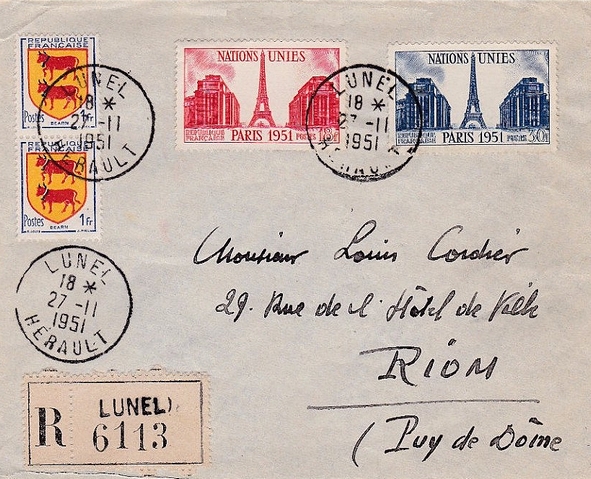 REPUBLIQUE
FRANÇAISE
Postes
BEARN
Postes 1Fr
BEARN
NATIONS UNIES
REPUBLIQUE
FRANÇAISE
PARIS 1951 18F
POSTES
NATIONS UNIES
REPUBLIQUE
FRANÇAISE
PARIS 1951 30F
POSTES
LUNEL
18 *
27-11
1951
HERAULT
LUNEL
18 *
27-11
1951
HERAULT
LUNEL
18 *
27-11
1951
HERAULT
Monsieur Louis Cordier
29. Rue de l'Hôtel de Ville
RIOM
(Puy de Dôme
R LUNEL)
6113